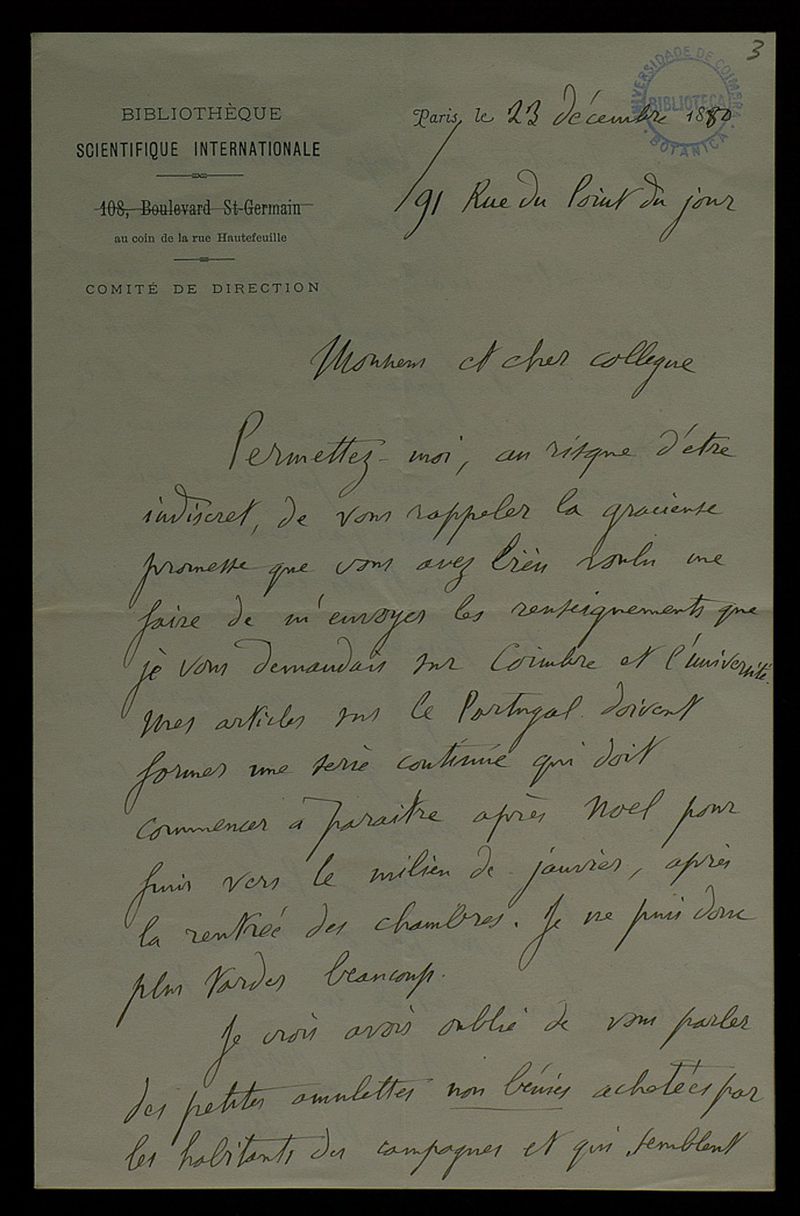 3
UNIVERSIDADE DE COIMBRA
BIBLIOTECA
BOTANICA
BIBLIOTHÈQUE
SCIENTIFIQUE INTERNATIONALE
108, Boulevard St-Germain
au coin de la rue Hautefeuille
COMITÉ DE DIRECTION
Paris, le 23 décembre 1880
91 Rue du Point du jour
Monsieur et cher collegue
Permettez-moi, au risque d'être
indiscret, de vous rappeler la gracieuse
promesse que vous avez bien voulu me
faire de m'envoyer les renseignements que
je vous demandais sur Coimbre et l'université.
Mes articles sur le Portugal doivent
former une serie continue qui doit
commencer à paraitre après Noel pour
finir vers le milieu de janvier, après
la rentrée des chambres. Je ne puis donc
plus tarder beaucoup.
Je crois avoir oublié de vous parler
des petites amulettes non bénies achetées par
les habitants des campagnes et qui semblent